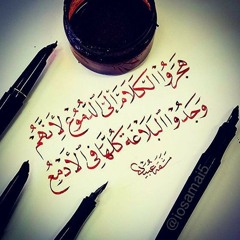 هَجَرُوا الْكَلَامَ إِلَى الدُّمُوعِ لِأَنَّهُمْ
وَجَدُوا الْبَلَاغَةَ كُلَّهَا فِي الْأَدْمُعِ
@iosamal5